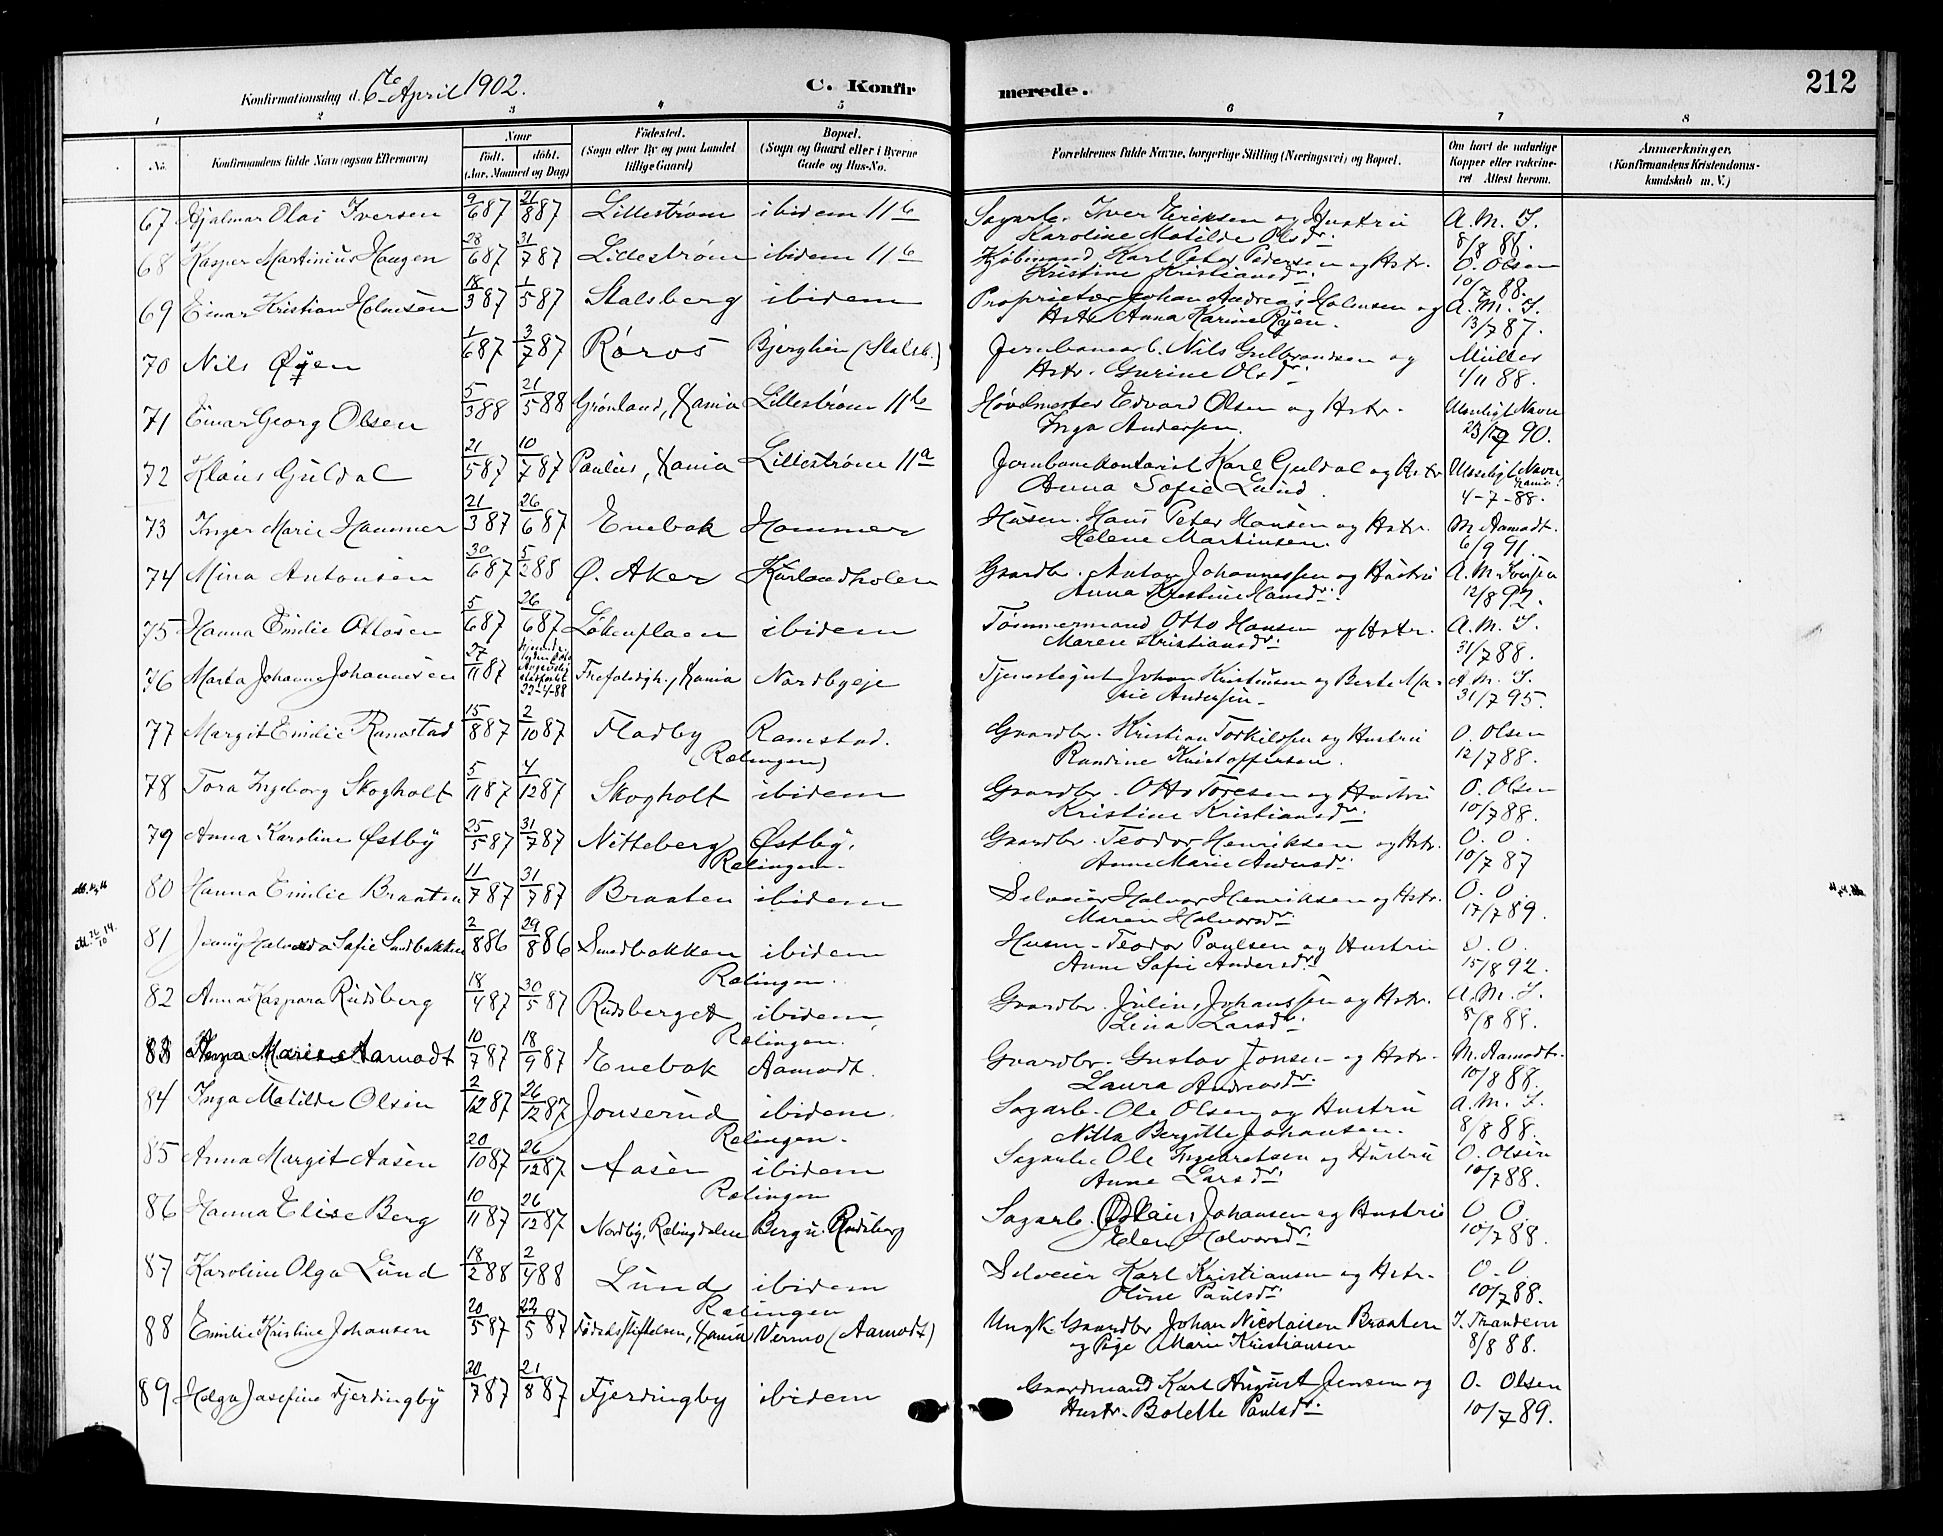 Konfirmationsdag d. 6te April 1902.
C. Konfirmerede.
212
1 2 3 4 5 6 7 8
No. Konfirmandens fulde Navn (ogsaa Efternavn) Naar født. døbt. (Aar, Maaned og Dag) Fødested. (Sogn eller By og paa Landet tillige Gaard) Bopæl. (Sogn og Gaard eller i Byerne Gade og Hus-No. Forældrenes fulde Navne, borgerlige Stilling (Næringsvei) og Bopæl. Om havt de naturlige Kopper eller vakcineret Attest herom. Anmærkninger. (Konfirmandens Kristendomskundskab m. V.)
67 Hjalmar Olai Iversen 9/6 87 21/8 87 Lillestrøm ibidem 11b Sagarb. Iver Eriksen og Hustru A. M. I.
Karoline Matilde Olsdr. 8/8 88.
68 Kasper Martinius Haugen 28/6 87 31/7 87 Lillestrøm ibidem 11b Kjøbmand Karl Peter Pedersen og Hstr. O. Olsen
Kristine Kristiansdr. 10/7 88.
69 Einar Kristian Holmsen 18/3 87 1/5 87 Stalsberg ibidem Proprietær Johan Andreas Holmsen og A. M. I.
Hstr Anna Karine Ryen. 13/7 87.
70 Nils Øyen 1/6 87 3/7 87 Røros Bjerghim (Stalsb.) Jernbanearb. Nils Gulbrandsen og Müller
Hstr. Gurine Olsdr. 1/11 88.
71 Einar Georg Olsen 5/3 88 21/5 88 Grønland, Xania Lillestrøm 11b Høvelmester Edvard Olsen og Hstr. Ulæseligt Navn
Inga Andersen. 90.
72 Klaus Guldal 21/5 87 10/7 87 Paulus, Xania Lillestrøm 11a Jernbanekontorist Karl Guldal og Hstr Ulæseligt Navn
Anna Sofie Lund. 4-7-88.
73 Inger Marie Hammer 21/3 87 26/6 87 Enebak Hammer Husm. Hans Peter Hansen og Hstr. M. Aamodt.
Helene Martinsen. 6/9 91.
74 Mina Antonsen 30/6 87 5/2 88 Ø. Aker Kurlandholen Gaardbr. Anton Johannessen og Hustru A. M. Iversen
Anna Kjestine Hansdr. 12/8 92.
75 Hanna Emilie Ottosen 5/6 87 26/6 87 Løkenplaen ibidem Tømmermand Otto Hansen og Hstr. A. M. I.
Maren Kristiansdr. 31/7 88.
76 Marta Johanne Johannesen 27/11 87 22-4-88 Trefoldigh., Xania Nordbyeje Tjenestegut Johan Kristensen og Berte Ma- A. M. I.
rie Andersen. 31/7 95.
77 Margit Emilie Ramstad 15/8 87 2/10 87 Fladby Ramstad. Gaardbr. Kristian Torkildsen og Hustru O. Olsen
(Rælingen) Randine Kristoffersen. 12/7 88.
78 Tora Ingeborg Skogholt 5/11 87 4/12 87 Skogholt ibidem Gaardbr. Otto Toresen og Hustru O. Olsen
Kristine Kristiansdr. 10/7 88.
79 Anna Karoline Østby 25/5 87 31/7 87 Nitteberg Østby. Gaardbr. Teodor Henriksen og Hstr. O. O.
Rælingen. Anne Marie Andersdr. 10/7 87
80 Hanna Emilie Braaten 11/7 87 31/7 87 Braaten ibidem Selveier Halvor Henriksen og Hstr. O. O.
Maren Halvorsdr. 17/7 89.
81 Jenny Halvarda Sofie Sundbakken 2/8 86 29/8 86 Sundbakken ibidem Husm. Teodor Paulsen og Hustru O. O.
Rælingen. Anne Sofie Andersdr. 15/8 92.
82 Anna Kaspara Rudsberg 18/4 87 30/5 87 Rudsberget ibidem, Gaardbr. Julius Johanssen og Hstr. A. M. I.
Rælingen. Lina Larsdr. 8/8 88.
83 Marie Aamodt 10/7 87 18/9 87 Enebak Aamodt. Gaardbr. Gustav Jonsen og Hstr. M. Aamodt.
Laura Andreasdr. 10/8 88.
84 Inga Matilde Olsen 2/12 87 26/12 87 Jonserud ibidem. Sagarb. Ole Olsen og Hustru A. M. I.
Rælingen. Nilla Bergitte Johansen. 8/8 88.
85 Anna Margit Aasen 20/10 87 26/12 87 Aasen ibidem Sagarb. Ole Ingvaretsen og Hustru O. Olsen
Rælingen Anne Larsdr. 10/7 88.
86 Hanna Elise Berg 10/11 87 26/12 87 Nordby, Rælingdalen Berg u. Rudsberg Sagarb. Olaus Johansen og Hustru O. O.
Elen Halvorsdr. 10/7 88.
87 Karoline Olga Lund 18/2 88 2/4 88 Lund ibidem Selveier Karl Kristiansen og Hstr. O. O.
Rælingen Oline Paulsdr. 10/7 88.
88 Emilie Kristine Johansen 20/5 87 22/5 87 Fødselsstiftelsen, Xania Vermo (Aamodt) Ungk. Gaardbr Johan Nicolaisen Braaten I. Trandem
og Pige Marie Kristiansen 8/8 88.
89 Helga Josefine Fjerdingby 20/7 87 21/8 87 Fjerdingby ibidem Gaardmand Karl August Jensen og O. Olsen
Hustr. Bolette Paulsdr. 10/7 89.